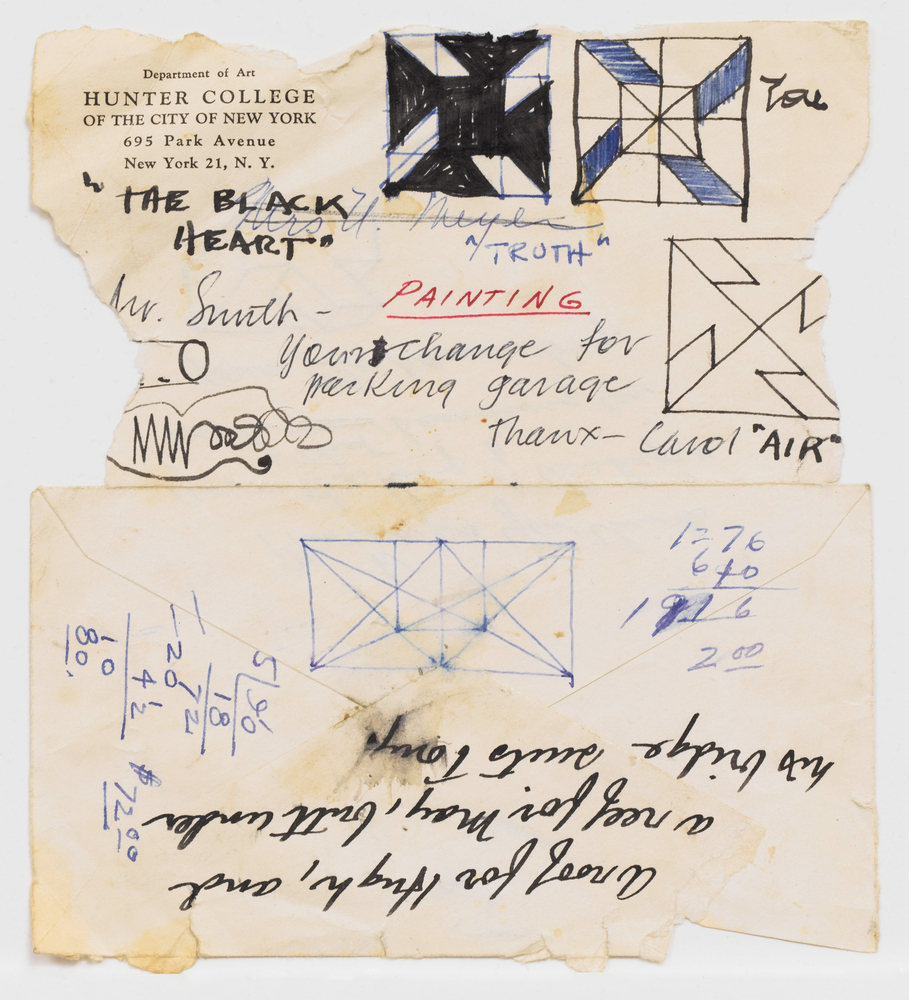 Department of Art
HUNTER COLLEGE
OF THE CITY OF NEW YORK
695 Park Avenue
New York 21, N. Y.
"THE BLACK
HEART"
Mrs U. Meyer
"TRUTH"
PAINTING
Mr. Smith -
Your change for
parking garage
Thanx - Carol
"AIR"
2 00
5/90
18
72
20
42
10
80.
$72.00
A roof for Hugh, and
a reef for May, built under
his bridge suits Tony.